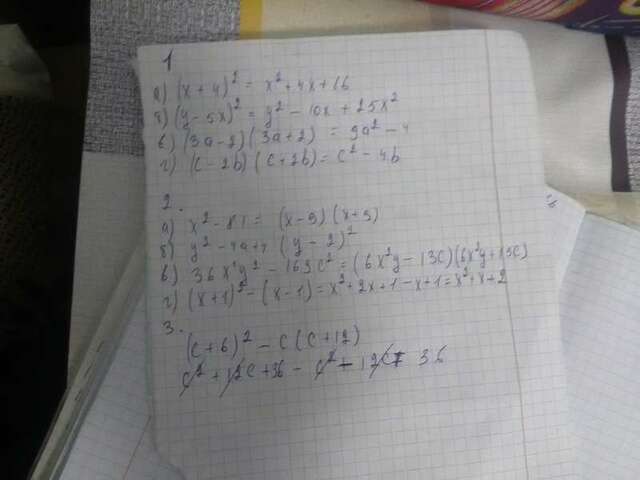 1
а) (x + 4)² = x² + 4x + 16
б) (y - 5x)² = y² - 10x + 25x²
в) (3a - 2)(3a + 2) = 9a² - 4
г) (c - 2b)(c + 2b) = c² - 4b
2.
а) x² - 81 = (x - 9)(x + 9)
б) y² - 4a + 4 (y - 2)²
в) 36x⁴y² - 169c² = (6x²y - 13c)(6x²y + 13c)
г) (x + 1)² - (x - 1) = x² + 2x + 1 - x + 1 = x² + x + 2
3.
(c + 6)² - c(c + 12)
c² + 12c + 36 - c² - 12c = 36